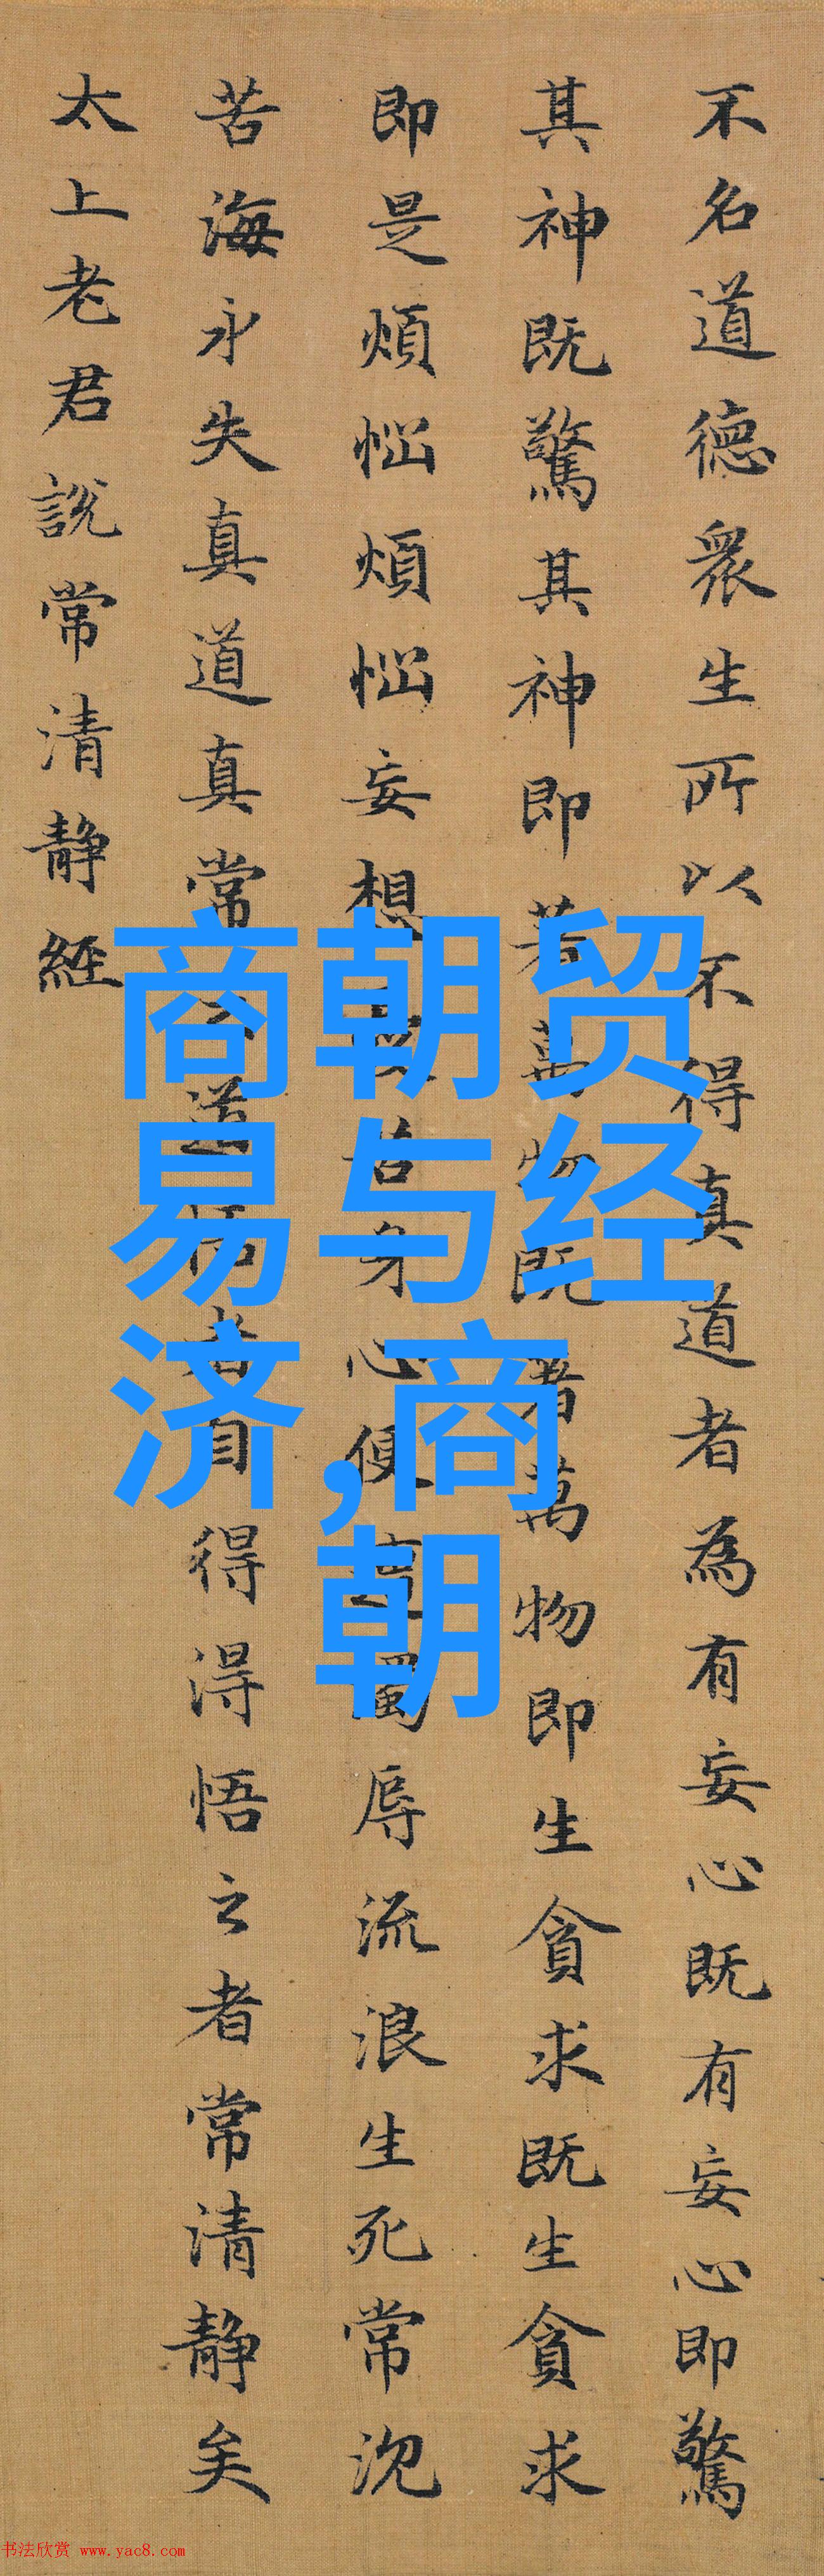 不名道德衆生所以不得真道者為有妄心既有妄心即驚
其神既驚其神即著萬物既著萬物即生貪求既生貪求
即是煩惱煩惱妄想憂苦身心便遭濁辱流浪生死常沉
苦海永失真道真常之道悟者自得得悟之者常清静矣
太上老君說常清静經
商朝贸
易与经
济,商
朝
书法欣赏 www.yac8.com